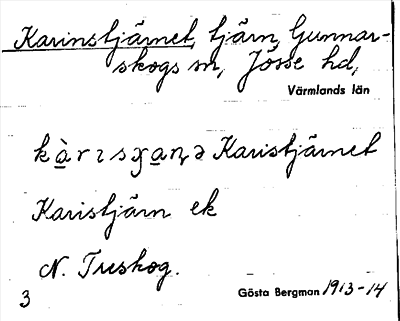 Karinstjärnet, tjärn, Gunnar-
skogs sn, Jösse hd,
Värmlands län
Karistjärnet
Karistjärn ek
N. Treskog.
3 Gösta Bergman 1913-14